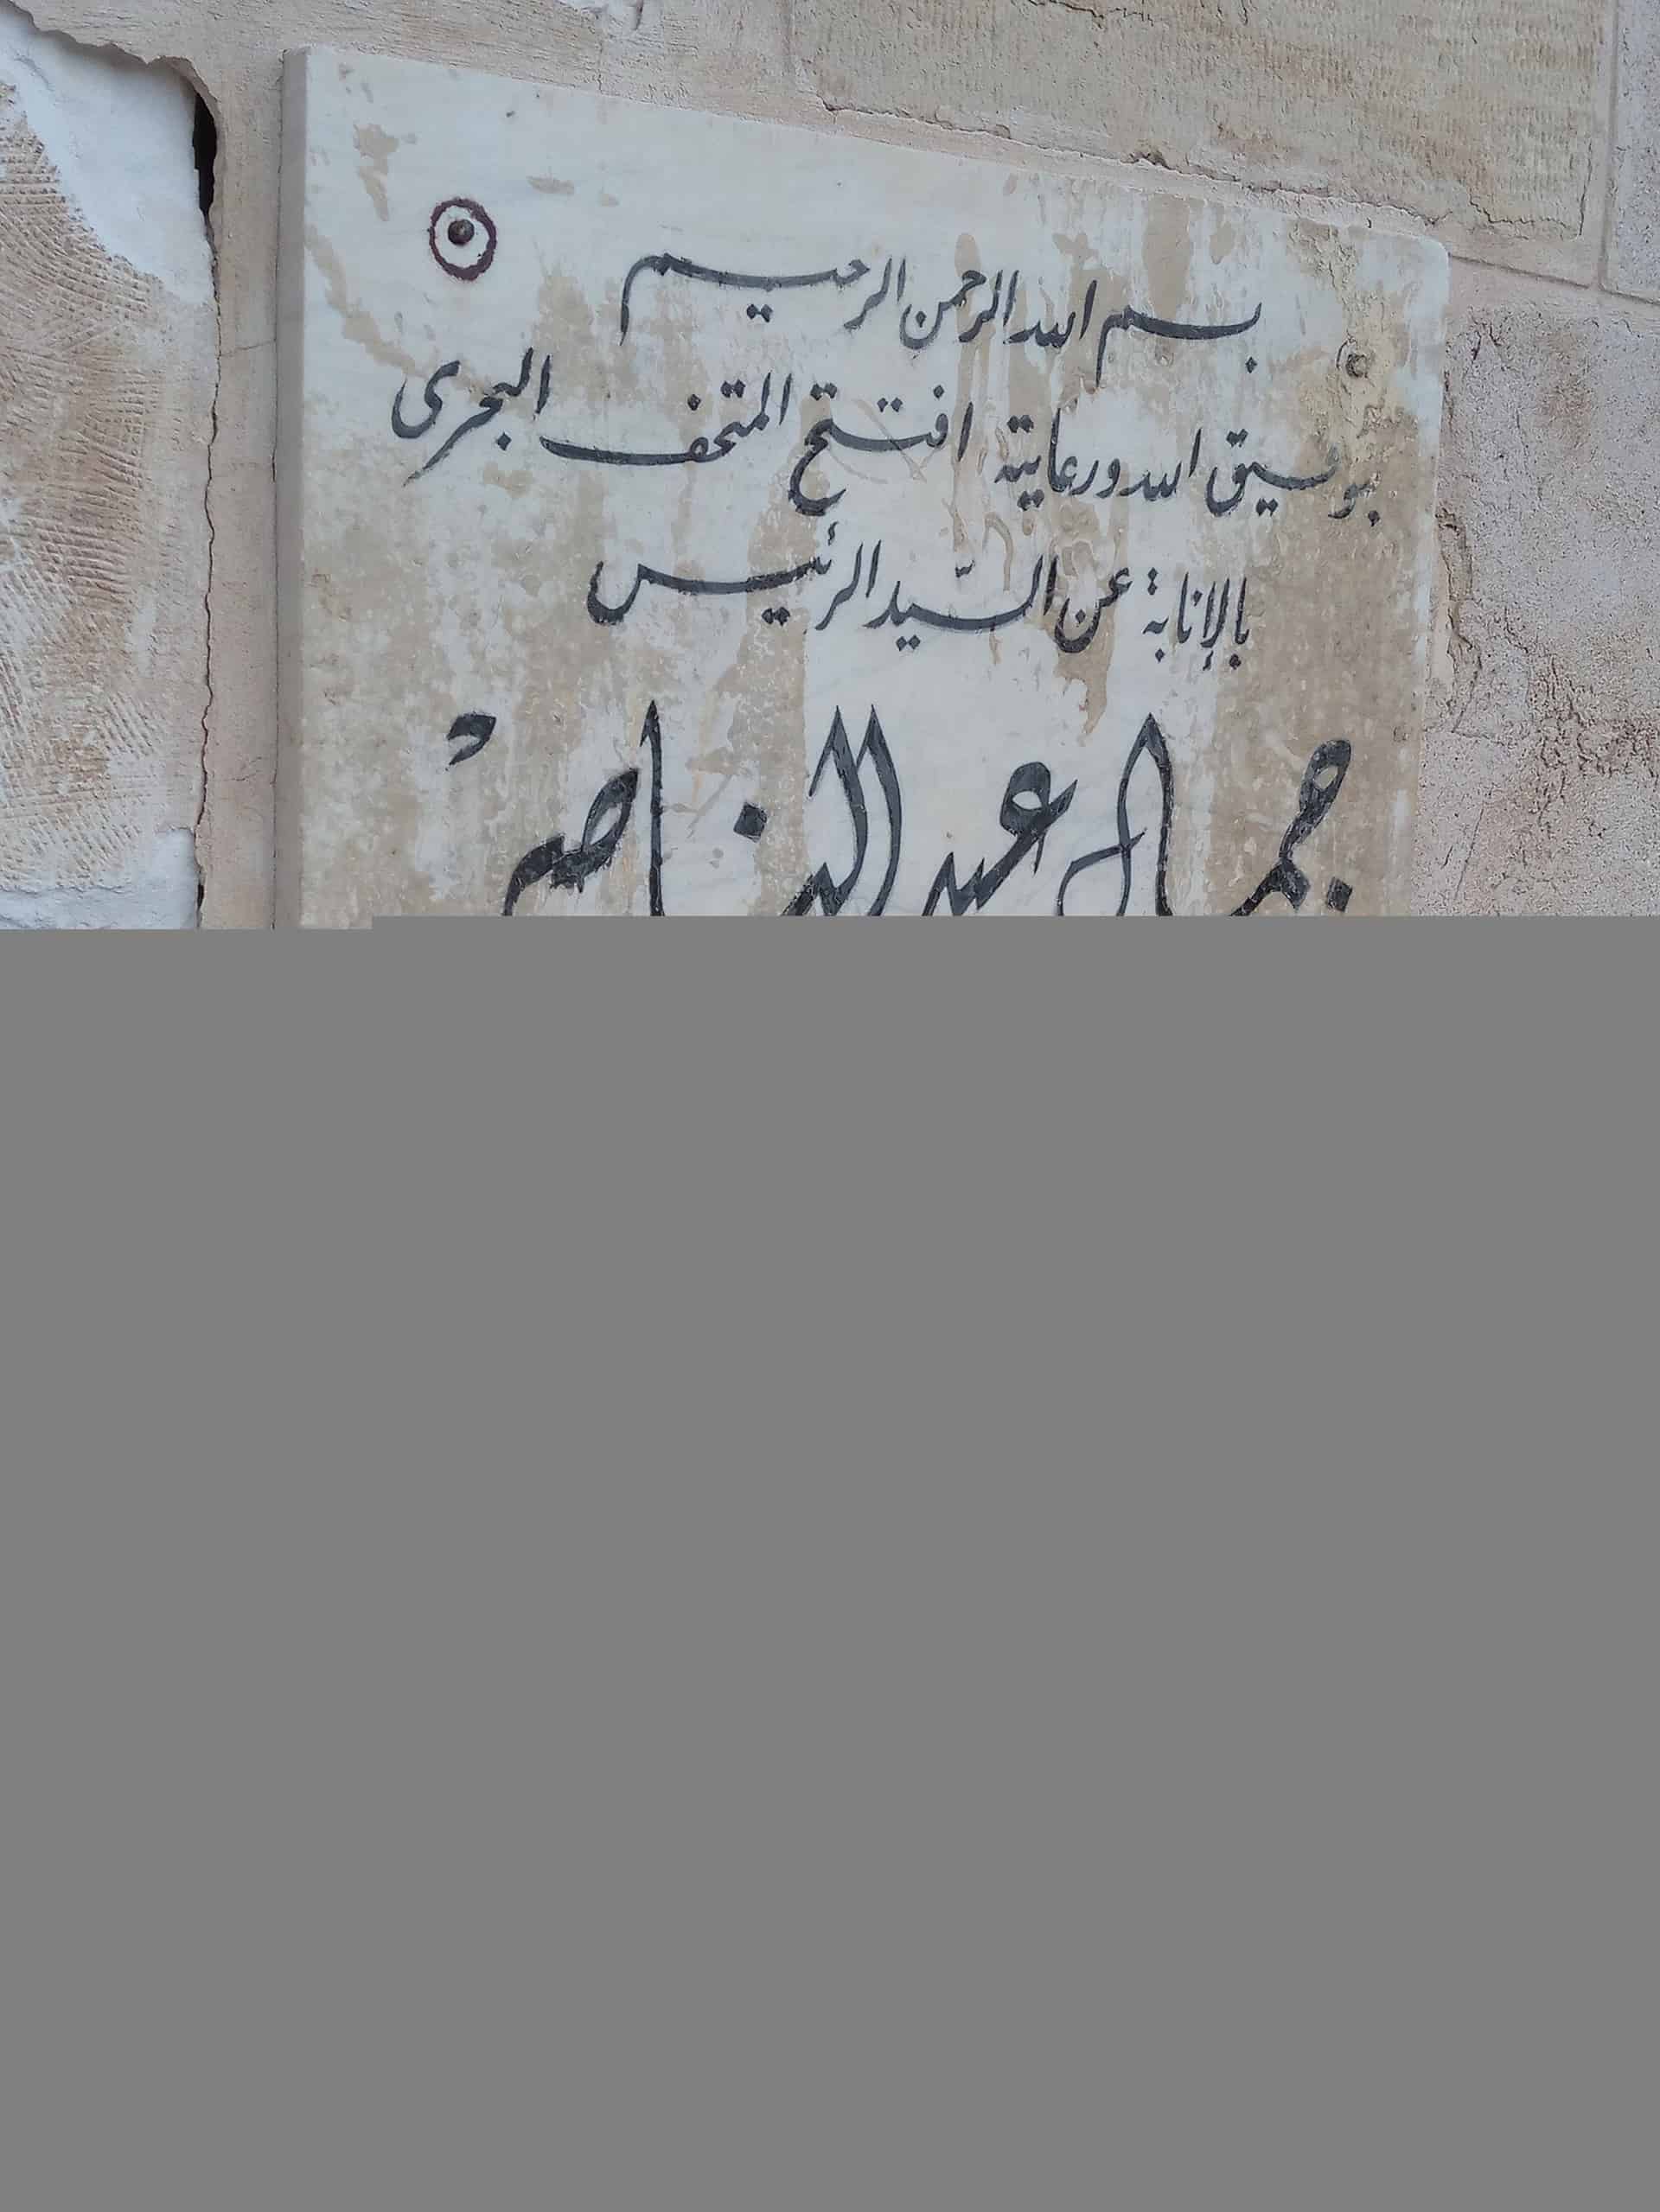 بسم الله الرحمن الرحيم
بتوفيق الله ورعايته افتتح المتحف البحرى
بالإنابة عن السيّد الرئيس
جمال عبد الناصر